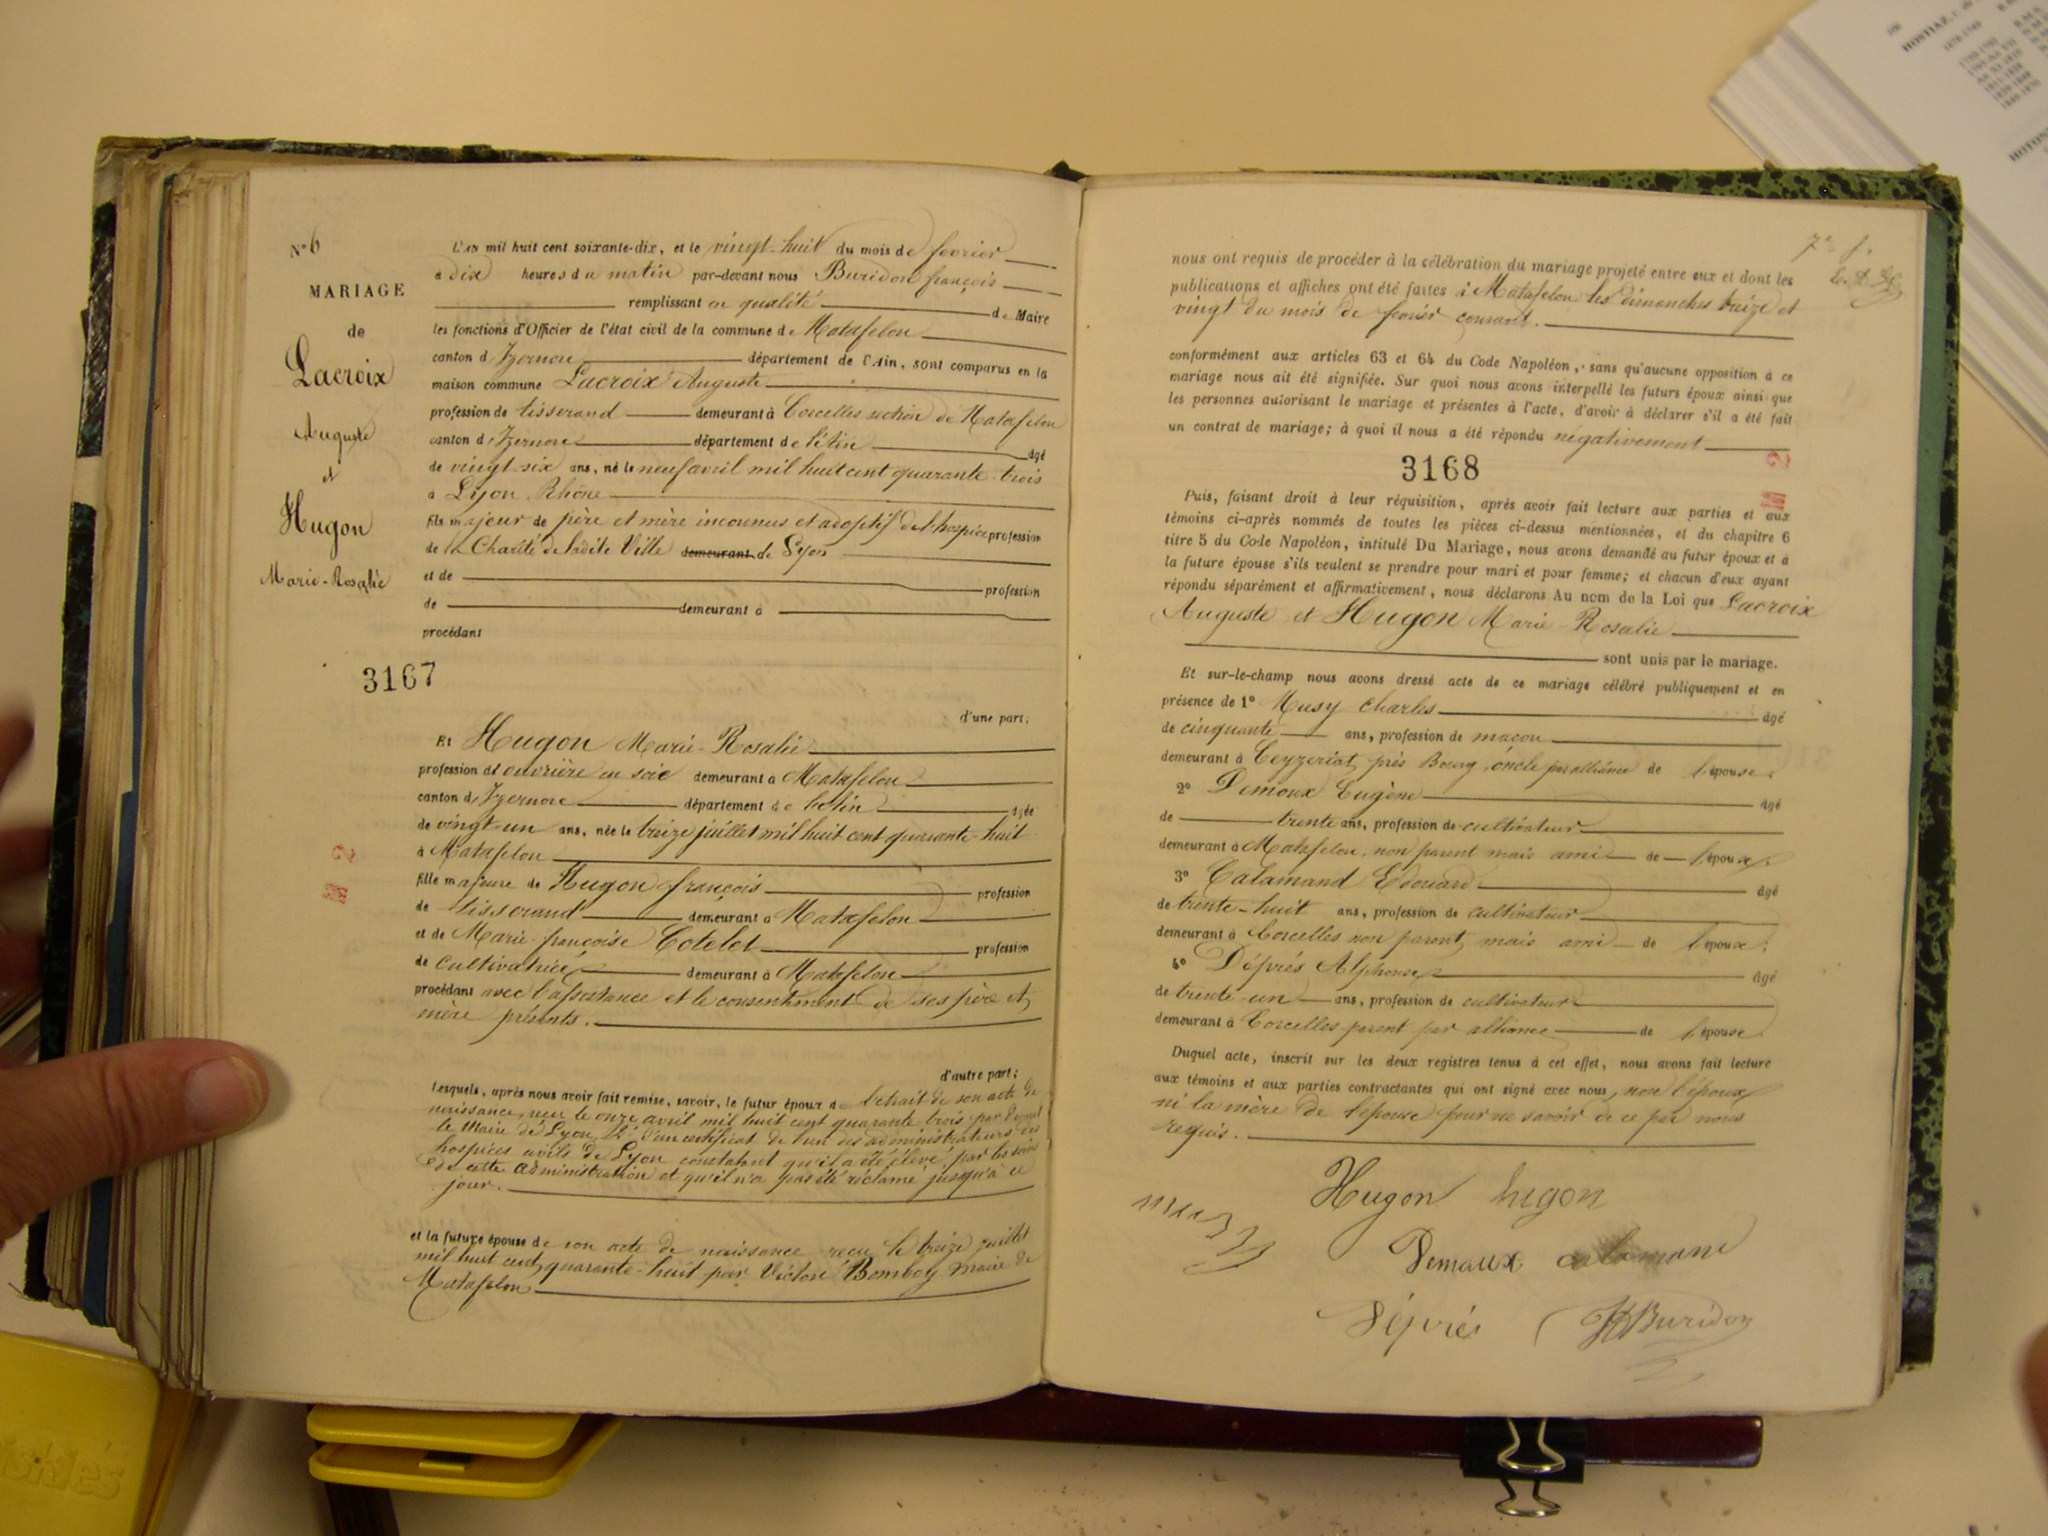 N° 6
MARIAGE
de
Lacroix
Auguste
et
Hugon
Marie-Rosalie
L'an mil huit cent soixante-dix, et le vingt-huit du mois de fevrier
à dix heures du matin par-devant nous Buridon françois
remplissant en qualité de Maire
les fonctions d'Officier de l'état civil de la commune de Matafelon
canton d'Izernore département de l'Ain, sont comparus en la
maison commune Lacroix Auguste
profession de tisserand demeurant à Corcelles section de Matafelon
canton d'Izernore département de l'Ain âgé
de vingt-six ans, né le neuf avril mil huit cent quarante-trois
à Lyon Rhône
fils majeur de père et mère inconnus et adoptif de l'hospice profession
de la Charité de ladite Ville demeurant de Lyon
et de profession
de demeurant à
procédant
3167
d'une part;
Et Hugon Marie-Rosalie
profession d'ouvrière en soie demeurant à Matafelon
canton d'Izernore département de l'Ain âgée
de vingt-un ans, née le treize juillet mil huit cent quarante-huit
à Matafelon
fille majeure de Hugon françois profession
de tisserand demeurant à Matafelon
et de Marie françoise Cotelet profession
de cultivatrice demeurant à Matafelon
procédant avec l'assistance et le consentement de ses père et
mère présents.
d'autre part;
Lesquels, après nous avoir fait remise, savoir, le futur époux de l'extrait de son acte de
naissance, reçu le onze avril mil huit cent quarante trois par devant
le Maire de Lyon, 2° d'un certificat de l'un des administrateurs des
hospices civils de Lyon constatant qu'il a été élevé par les soins
de cette administration et qu'il n'a pas été réclamé jusqu'à ce
jour.
et la future épouse de son acte de naissance reçu le treize juillet
mil huit cent quarante-huit par Victore Bomboy maire de
Matafelon
7e f.
nous ont requis de procéder à la célébration du mariage projeté entre eux et dont les
publications et affiches ont été faites à Matafelon les dimanches treize et
vingt du mois de fevrier courant.
conformément aux articles 63 et 64 du Code Napoléon, sans qu'aucune opposition à ce
mariage nous ait été signifiée. Sur quoi nous avons interpellé les futurs époux ainsi que
les personnes autorisant le mariage et présentes à l'acte, d'avoir à déclarer s'il a été fait
un contrat de mariage; à quoi il nous a été répondu négativement
3168
Puis, faisant droit à leur réquisition, après avoir fait lecture aux parties et aux
témoins ci-après nommés de toutes les pièces ci-dessus mentionnées, et du chapitre 6
titre 5 du Code Napoléon, intitulé Du Mariage, nous avons demandé au futur époux et à
la future épouse s'ils veulent se prendre pour mari et pour femme; et chacun d'eux ayant
répondu séparément et affirmativement, nous déclarons Au nom de la Loi que Lacroix
Auguste et Hugon Marie-Rosalie
sont unis par le mariage.
Et sur-le-champ nous avons dressé acte de ce mariage célébré publiquement et en
présence de 1° Musy Charles âgé
de cinquante ans, profession de maçon
demeurant à Ceyzeriat, près Bourg, oncle par alliance de l'épouse.
2° Demoux Eugène âgé
de trente ans, profession de cultivateur
demeurant à Matafelon, non parent mais ami de l'époux;
3° Calamand Edouard âgé
de trente-huit ans, profession de cultivateur
demeurant à Corcelles non parent, mais ami de l'époux;
4° Déprés Alphonse âgé
de trente-un ans, profession de cultivateur
demeurant à Corcelles parent par alliance de l'épouse
Duquel acte, inscrit sur les deux registres tenus à cet effet, nous avons fait lecture
aux témoins et aux parties contractantes qui ont signé avec nous, non l'époux
ni la mère de l'épouse pour ne savoir de ce par nous
requis.
Hugon hugon
Demoux calamand
Déprés Buridon
HOSTIAZ